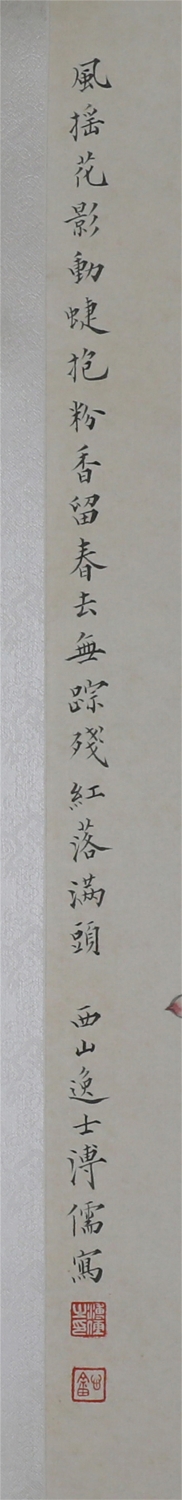 風揺花影動蜨抱粉香留春去無踪殘紅落滿頭 西山逸士溥儒寫